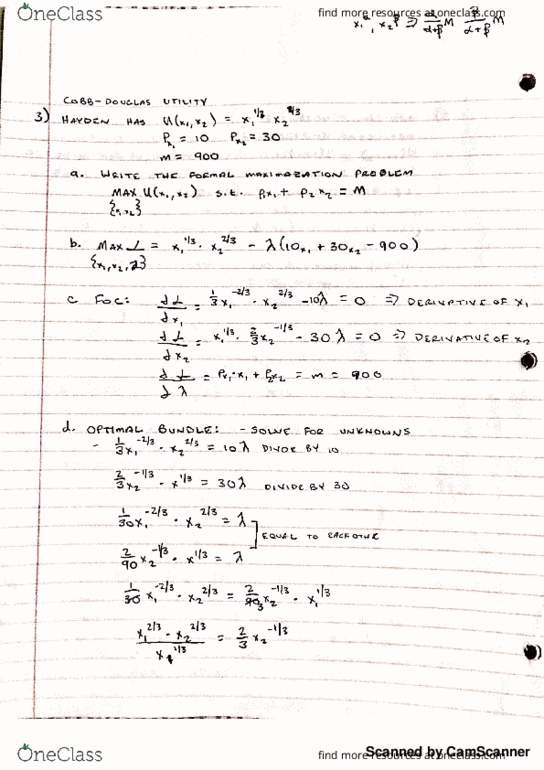 OneClass
find more resources at oneclass.com
x₁^α, x₂^β ⇒ α/α+β M β/α+β M
COBB-DOUGLAS UTILITY
3) HAYDEN HAS U(x₁,x₂) = x₁^1/3 x₂^2/3
Px₁ = 10 Px₂ = 30
m = 900
a. WRITE THE FORMAL MAXIMAZATION PROBLEM
MAX U(x₁,x₂) s.t. P₁x₁ + P₂x₂ = M
{x₁,x₂}
b. MAX L = x₁^1/3 · x₂^2/3 - λ(10x₁ + 30x₂ - 900)
{x₁,x₂,λ}
c FOC: dL/dx₁ = 1/3 x₁^-2/3 · x₂^2/3 - 10λ = 0 ⇒ DERIVATIVE OF x₁
dL/dx₂ = x₁^1/3 · 2/3 x₂^-1/3 - 30λ = 0 ⇒ DERIVATIVE OF x₂
dL/dλ = Px₁·x₁ + P₂x₂ = m = 900
d. OPTIMAL BUNDLE: - SOLVE FOR UNKNOWNS
- 1/3 x₁^-2/3 · x₂^2/3 = 10λ DIVIDE BY 10
2/3 x₂^-1/3 · x^1/3 = 30λ DIVIDE BY 30
1/30 x₁^-2/3 · x₂^2/3 = λ
EQUAL TO EACH OTHER
2/90 x₂^-1/3 · x^1/3 = λ
1/30 x₁^-2/3 · x₂^2/3 = 2/90 3 x₂^-1/3 · x₁^1/3
x₁^2/3 · x₂^2/3 / x₁^1/3 = 2/3 x₂^-1/3
OneClass
find more resources at oneclass.com
Scanned by CamScanner